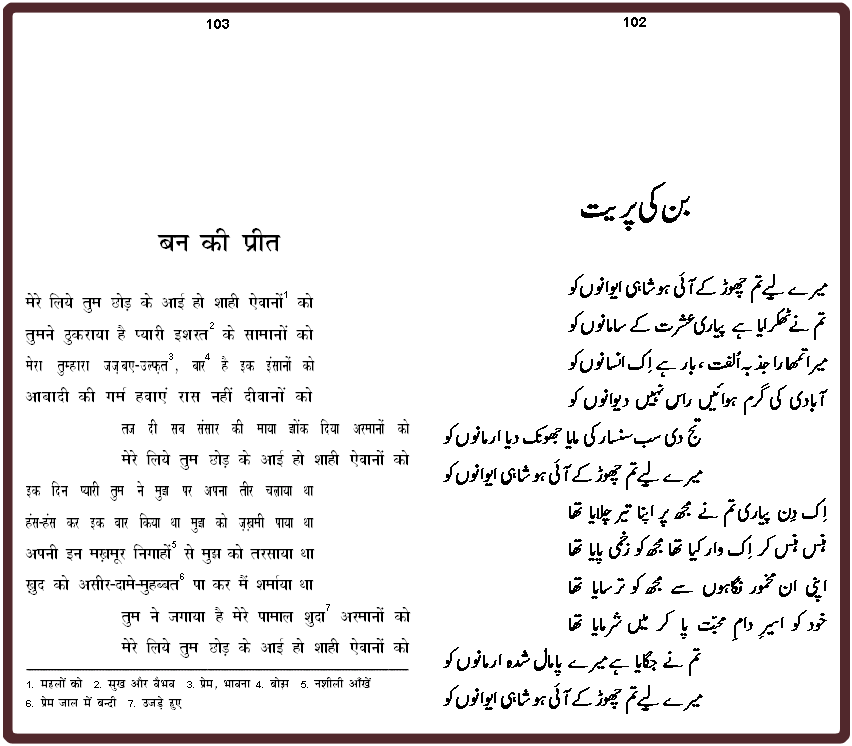 103
बन की प्रीत
मेरे लिये तुम छोड़ के आई हो शाही ऐवानों1 को
तुमने ठुकराया है प्यारी इशरत2 के सामानों को
मेरा तुम्हारा जज़्बए-उल्फ़त3, बार4 है इक इंसानों को
आबादी की गर्म हवाएं रास नहीं दीवानों को
तज दी सब संसार की माया झोंक दिया अरमानों को
मेरे लिये तुम छोड़ के आई हो शाही ऐवानों को
इक दिन प्यारी तुम ने मुझ पर अपना तीर चलाया था
हंस-हंस कर इक वार किया था मुझ को ज़ख़मी पाया था
अपनी इन मख़मूर निगाहों5 से मुझ को तरसाया था
ख़ुद को असीर-दामे-मुहब्बत6 पा कर मैं शर्माया था
तुम ने जगाया है मेरे पामाल शुदा7 अरमानों को
मेरे लिये तुम छोड़ के आई हो शाही ऐवानों को
1. महलों को 2. सुख और वैभव 3. प्रेम, भावना 4. बोझ 5. नशीली आँखें
6. प्रेम जाल में बन्दी 7. उजड़े हुए
102
بن کی پریت
میرے لیے تم چھوڑ کے آئی ہو شاہی ایوانوں کو
تم نے ٹھکرایا ہے پیاری عشرت کے سامانوں کو
میرا تمھارا جذبہ اُلفت ، بار ہے اِک انسانوں کو
آبادی کی گرم ہوائیں راس نہیں دیوانوں کو
تج دی سب سنسار کی مایا جھونک دیا ارمانوں کو
میرے لیے تم چھوڑ کے آئی ہو شاہی ایوانوں کو
اِک دِن پیاری تم نے مجھ پر اپنا تیر چلایا تھا
ہنس ہنس کر اِک وار کیا تھا مجھ کو زخمی پایا تھا
اپنی ان مخمور نگاہوں سے مجھ کو ترسایا تھا
خود کو اسیرِ دامِ محبّت پا کر میں شرمایا تھا
تم نے جگایا ہے میرے پامال شدہ ارمانوں کو
میرے لیے تم چھوڑ کے آئی ہو شاہی ایوانوں کو